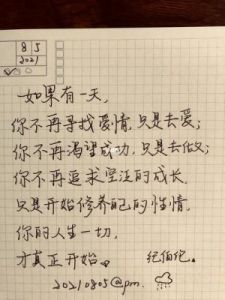 8 5
2021
如果有一天,
你不再寻找爱情,只是去爱;
你不再渴望成功,只是去做;
你不再追求空泛的成长,
只是开始修养自己的性情,
你的人生一切,
才真正开始。
纪伯伦。
20210805@pm.